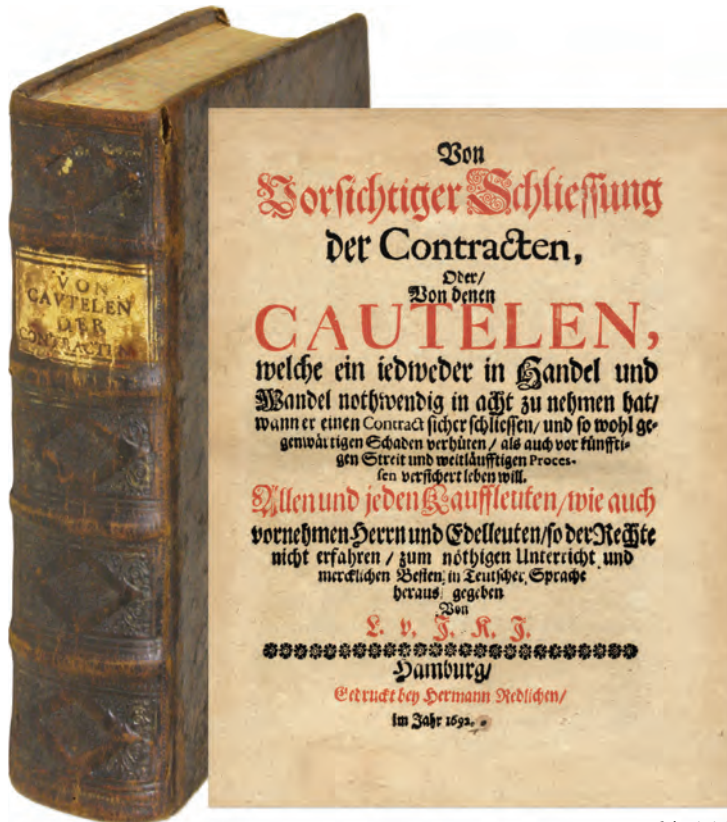 VON
CAVTELEN
DER
CONTRACTEN
Von
Vorsichtiger Schliessung
der Contracten,
Oder/
Von denen
CAUTELEN,
welche ein iedweder in Handel und
Wandel nothwendig in acht zu nehmen hat/
wann er einen Contract sicher schliessen/ und so wohl ge-
genwärtigen Schaden verhüten/ als auch vor künffti-
gen Streit und weitläufftigen Proces-
sen versichert leben will.
Allen und jeden Kauffleuten/ wie auch
vornehmen Herrn und Edelleuten/ so der Rechte
nicht erfahren / zum nöthigen Unterricht und
mercklichen Besten, in Teutscher Sprache
heraus gegeben
Von
L. v. J. K. J.
Hamburg/
Gedruckt bey Hermann Redlichen/
im Jahr 1692.